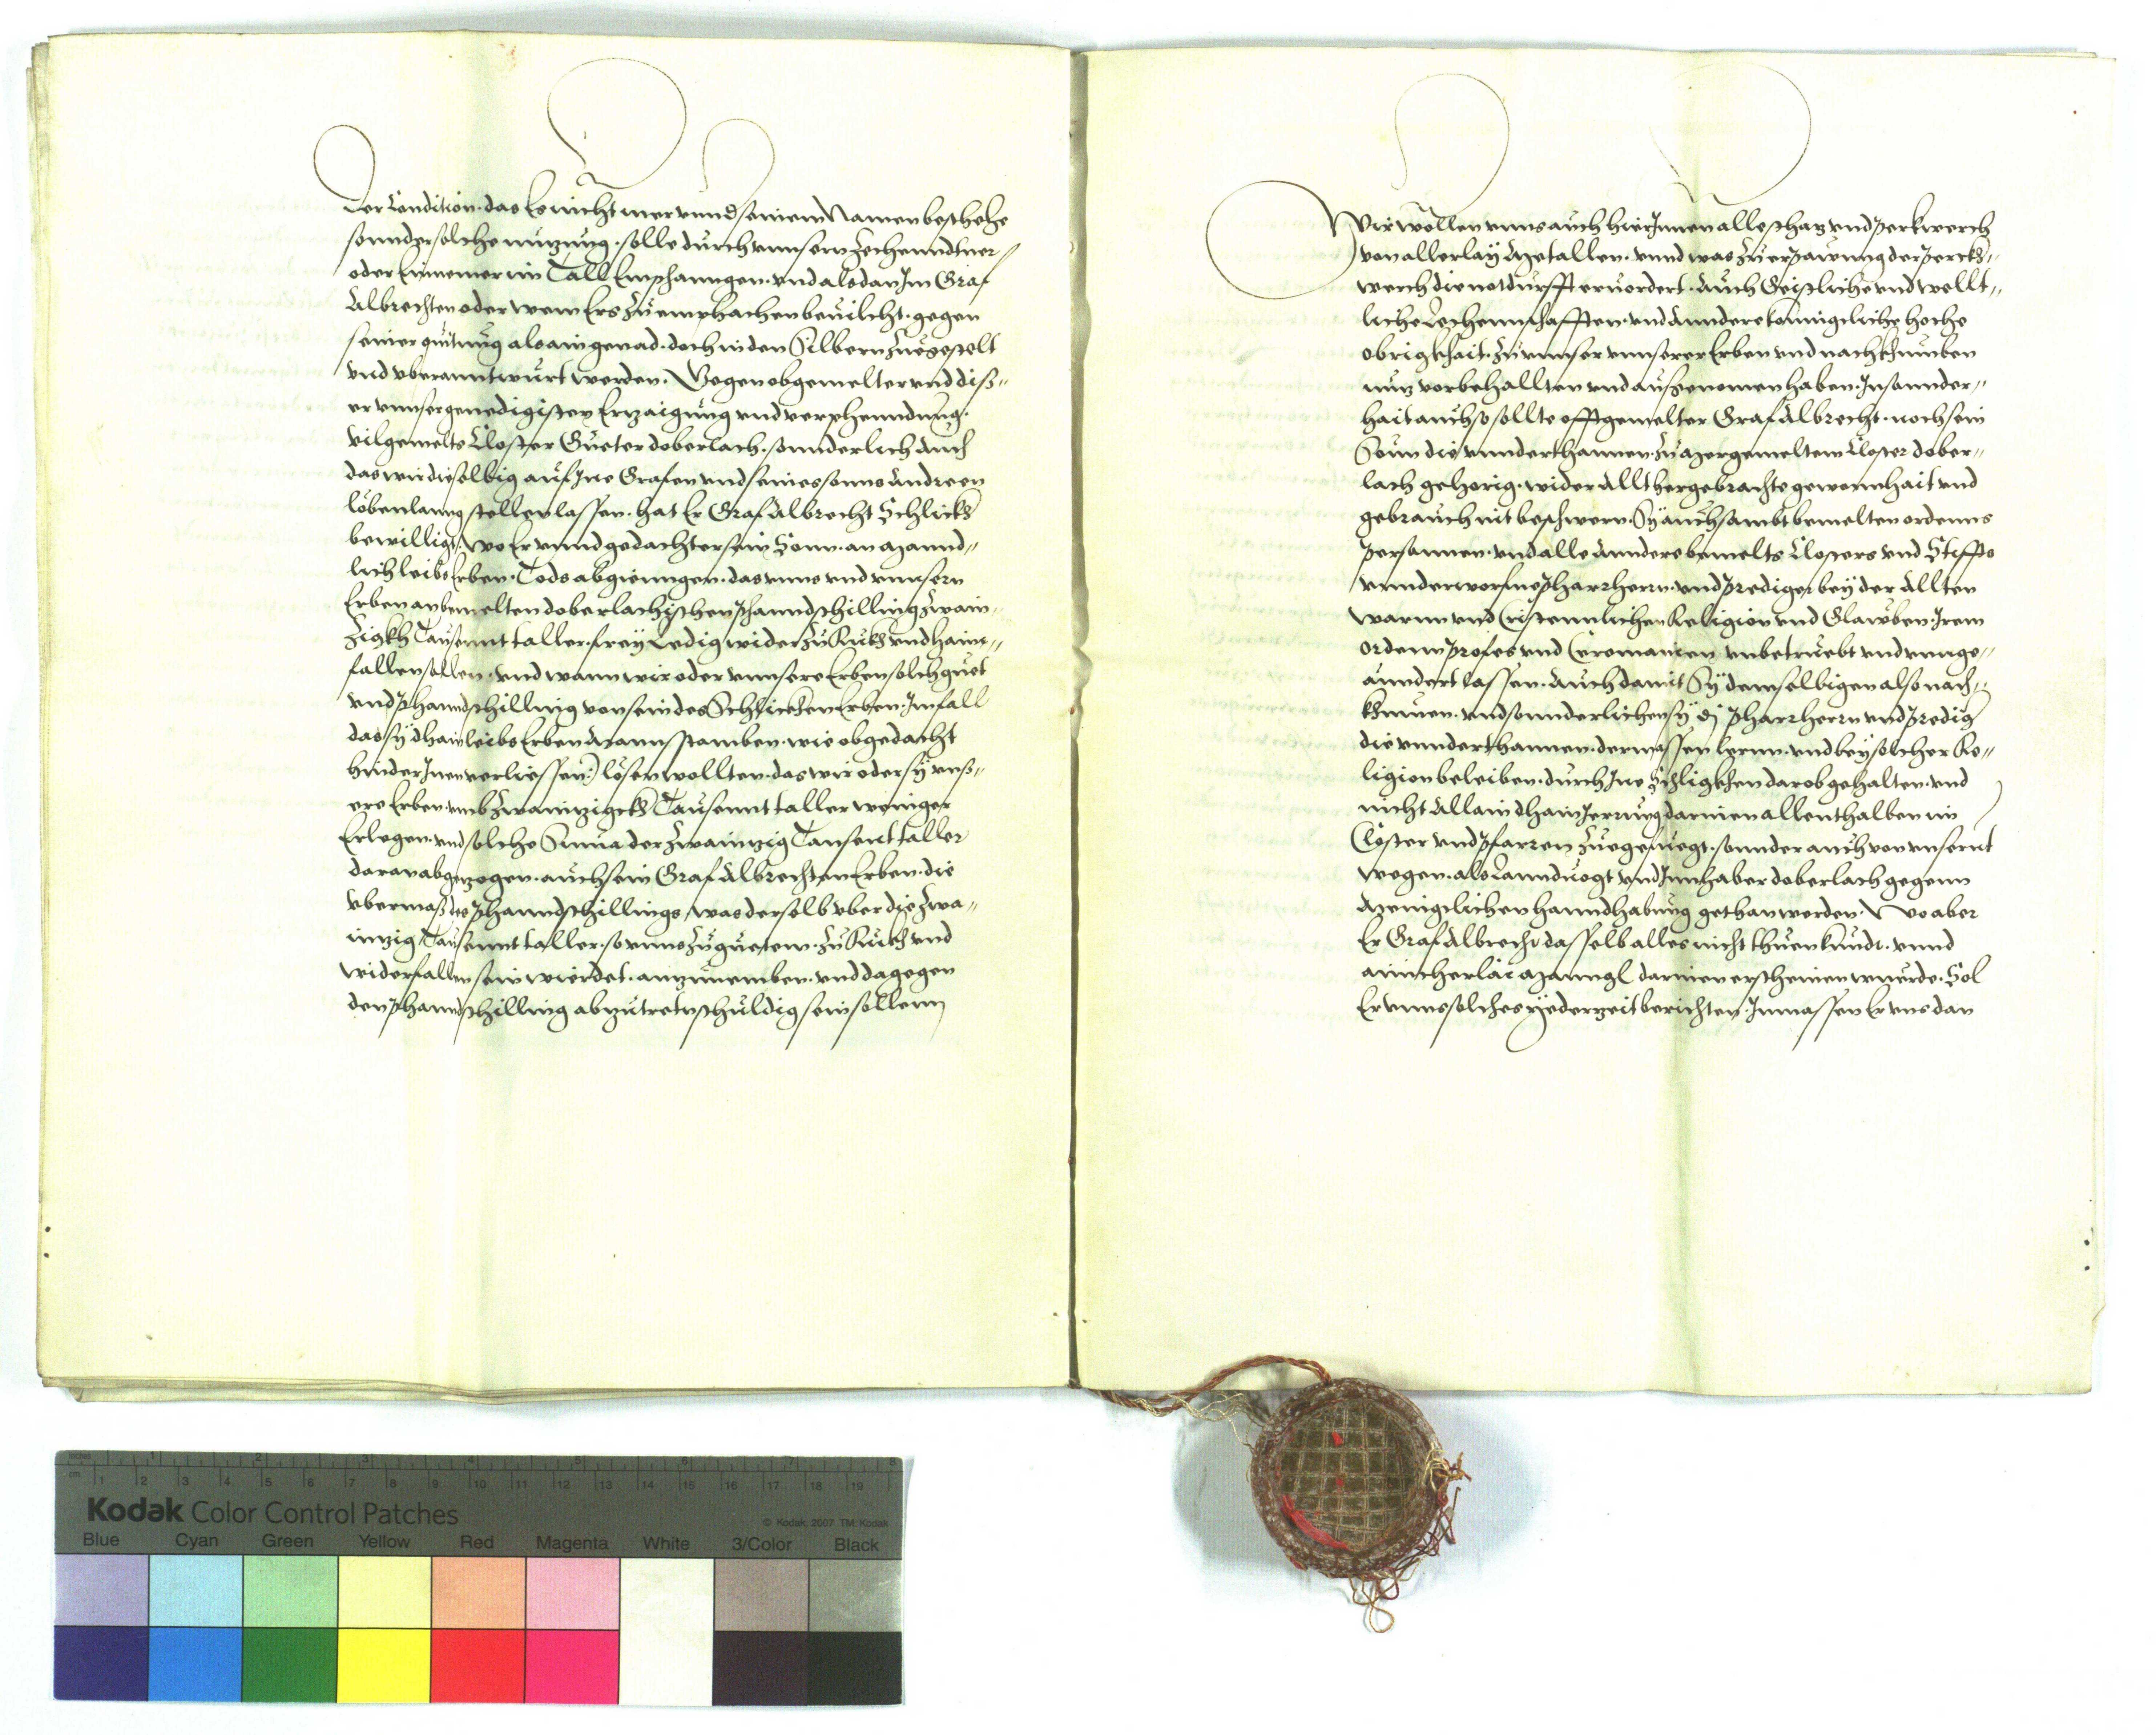 Der Condition. das Es nicht mer unnd seinem Namen beschehe
sonnder solche nuzung. solle durch unnsern Zechenndtner
oder Einnemer im Tall Emphanngen. und alsdan Im Graf
Albrechten oder wem Ers zu emphachen bevilcht. gegen
seiner quitung als ain genad. doch in den Silbern zuegestelt
und uberanntwurt werden. Wegen obgemelter und diß„
er unnser genedigisten Erzaigung und verphenndung.
vilgemelts Closter Gueter doberlach. sonnderlich auch
das wir dieselbig auf Ine Grafen und seines sonns Andreen
lebenlanng stellen lassen. hat Er Graf Albrecht Schlickh
bewilligt. wo Er unnd gedachter sein Sonn. an Mannd„
lich leibs Erben. Tods abgienngen. das unns und unnsern
Erben an bemelten doberlachischen Phanndschilling zwain„
zigkh Tausennt taller. frey Ledig wider zu Ruckh und haim„
fallen sollen. und wann wir oder unnsere Erben solch guet
und Phanndschilling von sein des Schlickhen Erben. Im fall
das sy dhain leibs Erben Manns stamben. wie obgedacht
hinder Inen verliessen:) lösen wollten. das wir oder sy unß„
ere Erben. umb zwainzigckh Tausennt taller weniger
Erlegen. und solche Suma der zwainzig Tausent taller
daran abgezogen. auch sein Graf Albrechten Erben. die
ubermaß des Phanndschillings, was derselb uber die zwa„
inzig Tausennt taller. so unns zu guetem. zu Ruckh und
widerfallen sein wierdet. anzunemben. und dagegen
den Phanndschilling abzutreten schuldig sein sollenn
Wir wöllen unns auch hier Innen alle schaz und Perkwerch
von allerlay Metallen. unnd was zu erpawung der Perckh„
werch die notdurfft ervordert. Auch Geistliche und wellt„
liche Lechennschafften. und anndere konnigcliche hoche
obrigkhait. zu unnser unnserer Erben und nachkhumben
nuz vorbehallten und außgenomen haben. Insonnder„
hait auch so sollte offtgemelter Graf Albrecht. noch sein
Sonn die unnderthannen. zu Mergemeltem Closter dober„
lach gehorig. wider Allt hergebrachte gewonnhait und
gebrauch nit beschwern. Sy auch sambt bemelten ordenns
Personnen. und alle anndere bemelts Closters und Stiffts
unnderworfne Pharrherrn. und Prediger bey der Allten
warnn und Cristennlichen Religion und Glawben. Irem
ordenn Profes und Ceremanien unbetruebt und unnge„
änndert lassen. Auch damit Sy demselbigen also nach„
khumen. und sonnderlichen sy die Pharrherrn und Predig
die unnderthannen. dermassen lernn. und bey solcher Re„
ligion beleiben. durch Ine Schligkhen darob gehalten. und
nicht Allain dhain Jerrung darinnen allenthalben im
Closter und Pfarren zuegefuegt. sonnder auch von unsernt
wegen. als Lanndvogt und Innhaber doberlach gegenn
Menigclichen hanndhabung gethan werden. Wo aber
Er Graf Albrecht dasselb alles nicht thuen kundt. unnd
ainicherlai Manngl darinnen erscheinen wurde. Sol
Er unns solches yederzeit berichten. Inmassen Er uns dan
inches
cm
1 2 3 4 5 6 7 8 9 10 11 12 13 14 15 16 17 18 19
Kodak Color Control Patches
© Kodak, 2007 TM: Kodak
Blue Cyan Green Yellow Red Magenta White 3/Color Black